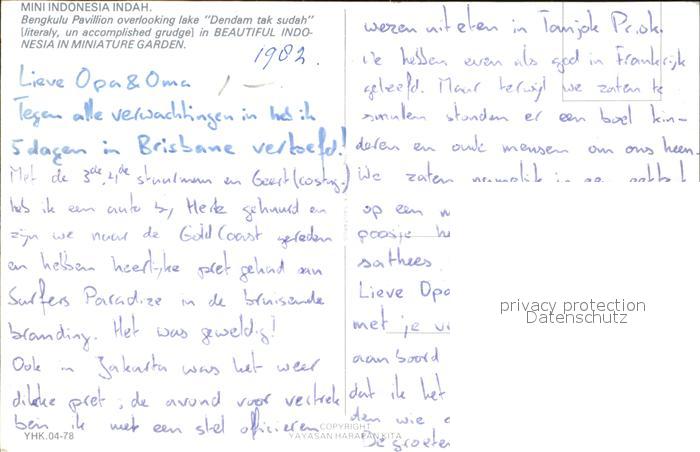 MINI INDONESIA INDAH.
Bengkulu Pavillion overlooking lake "Dendam tak sudah"
[literaly, un accomplished grudge] in BEAUTIFUL INDO-
NESIA IN MINIATURE GARDEN.
1982.
Lieve Opa & Oma
Tegen alle verwachtingen in heb ik
5 dagen in Brisbane vertoefd!
Met de 3de, 4de stuurman en Geert
heb ik een auto bij Hertz gehuurd en
zijn we naar de Gold Coast gereden
en hebben heerlijke pret gehad aan
Surfers Paradize in de bruisende
branding. Het was geweldig!
Ook in Jakarta was het weer
dikke pret; de avond voor vertrek
ben ik met een stel officieren
YHK.04-78
COPYRIGHT
YAYASAN HARAPAN KITA
wezen uit eten in Tanjok Priok.
We hebben even als god in Frankrijk
geleefd. Maar terwijl we zaten te
smullen stonden er een boel kin-
deren en oude mensen om ons heen.
We zaten
op een
poosje
sathees
Lieve Opa
met je
aan boord
dat ik het
den wie
De groeten
privacy protection
Datenschutz